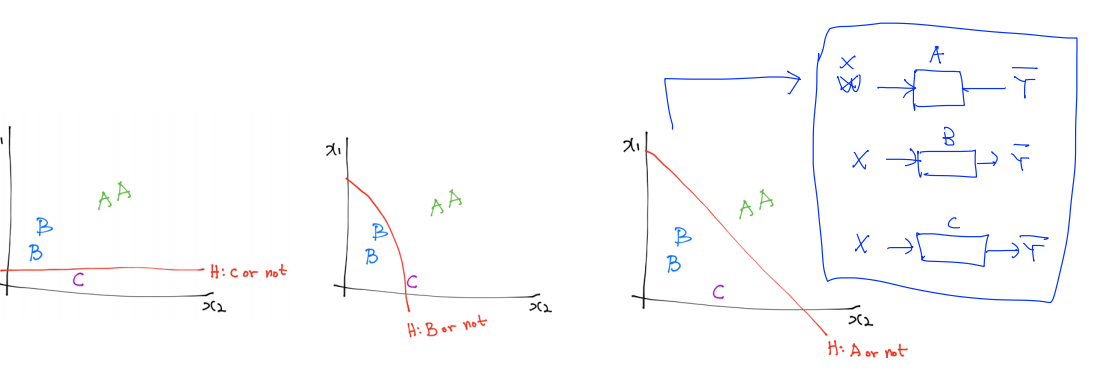 1
A A
B
B
C
H: C or not
x2
x1
A A
B
B
C
H: B or not
x2
x1
A A
B
B
C
H: A or not
x2
X
A
Y
X
B
Y
X
C
Y